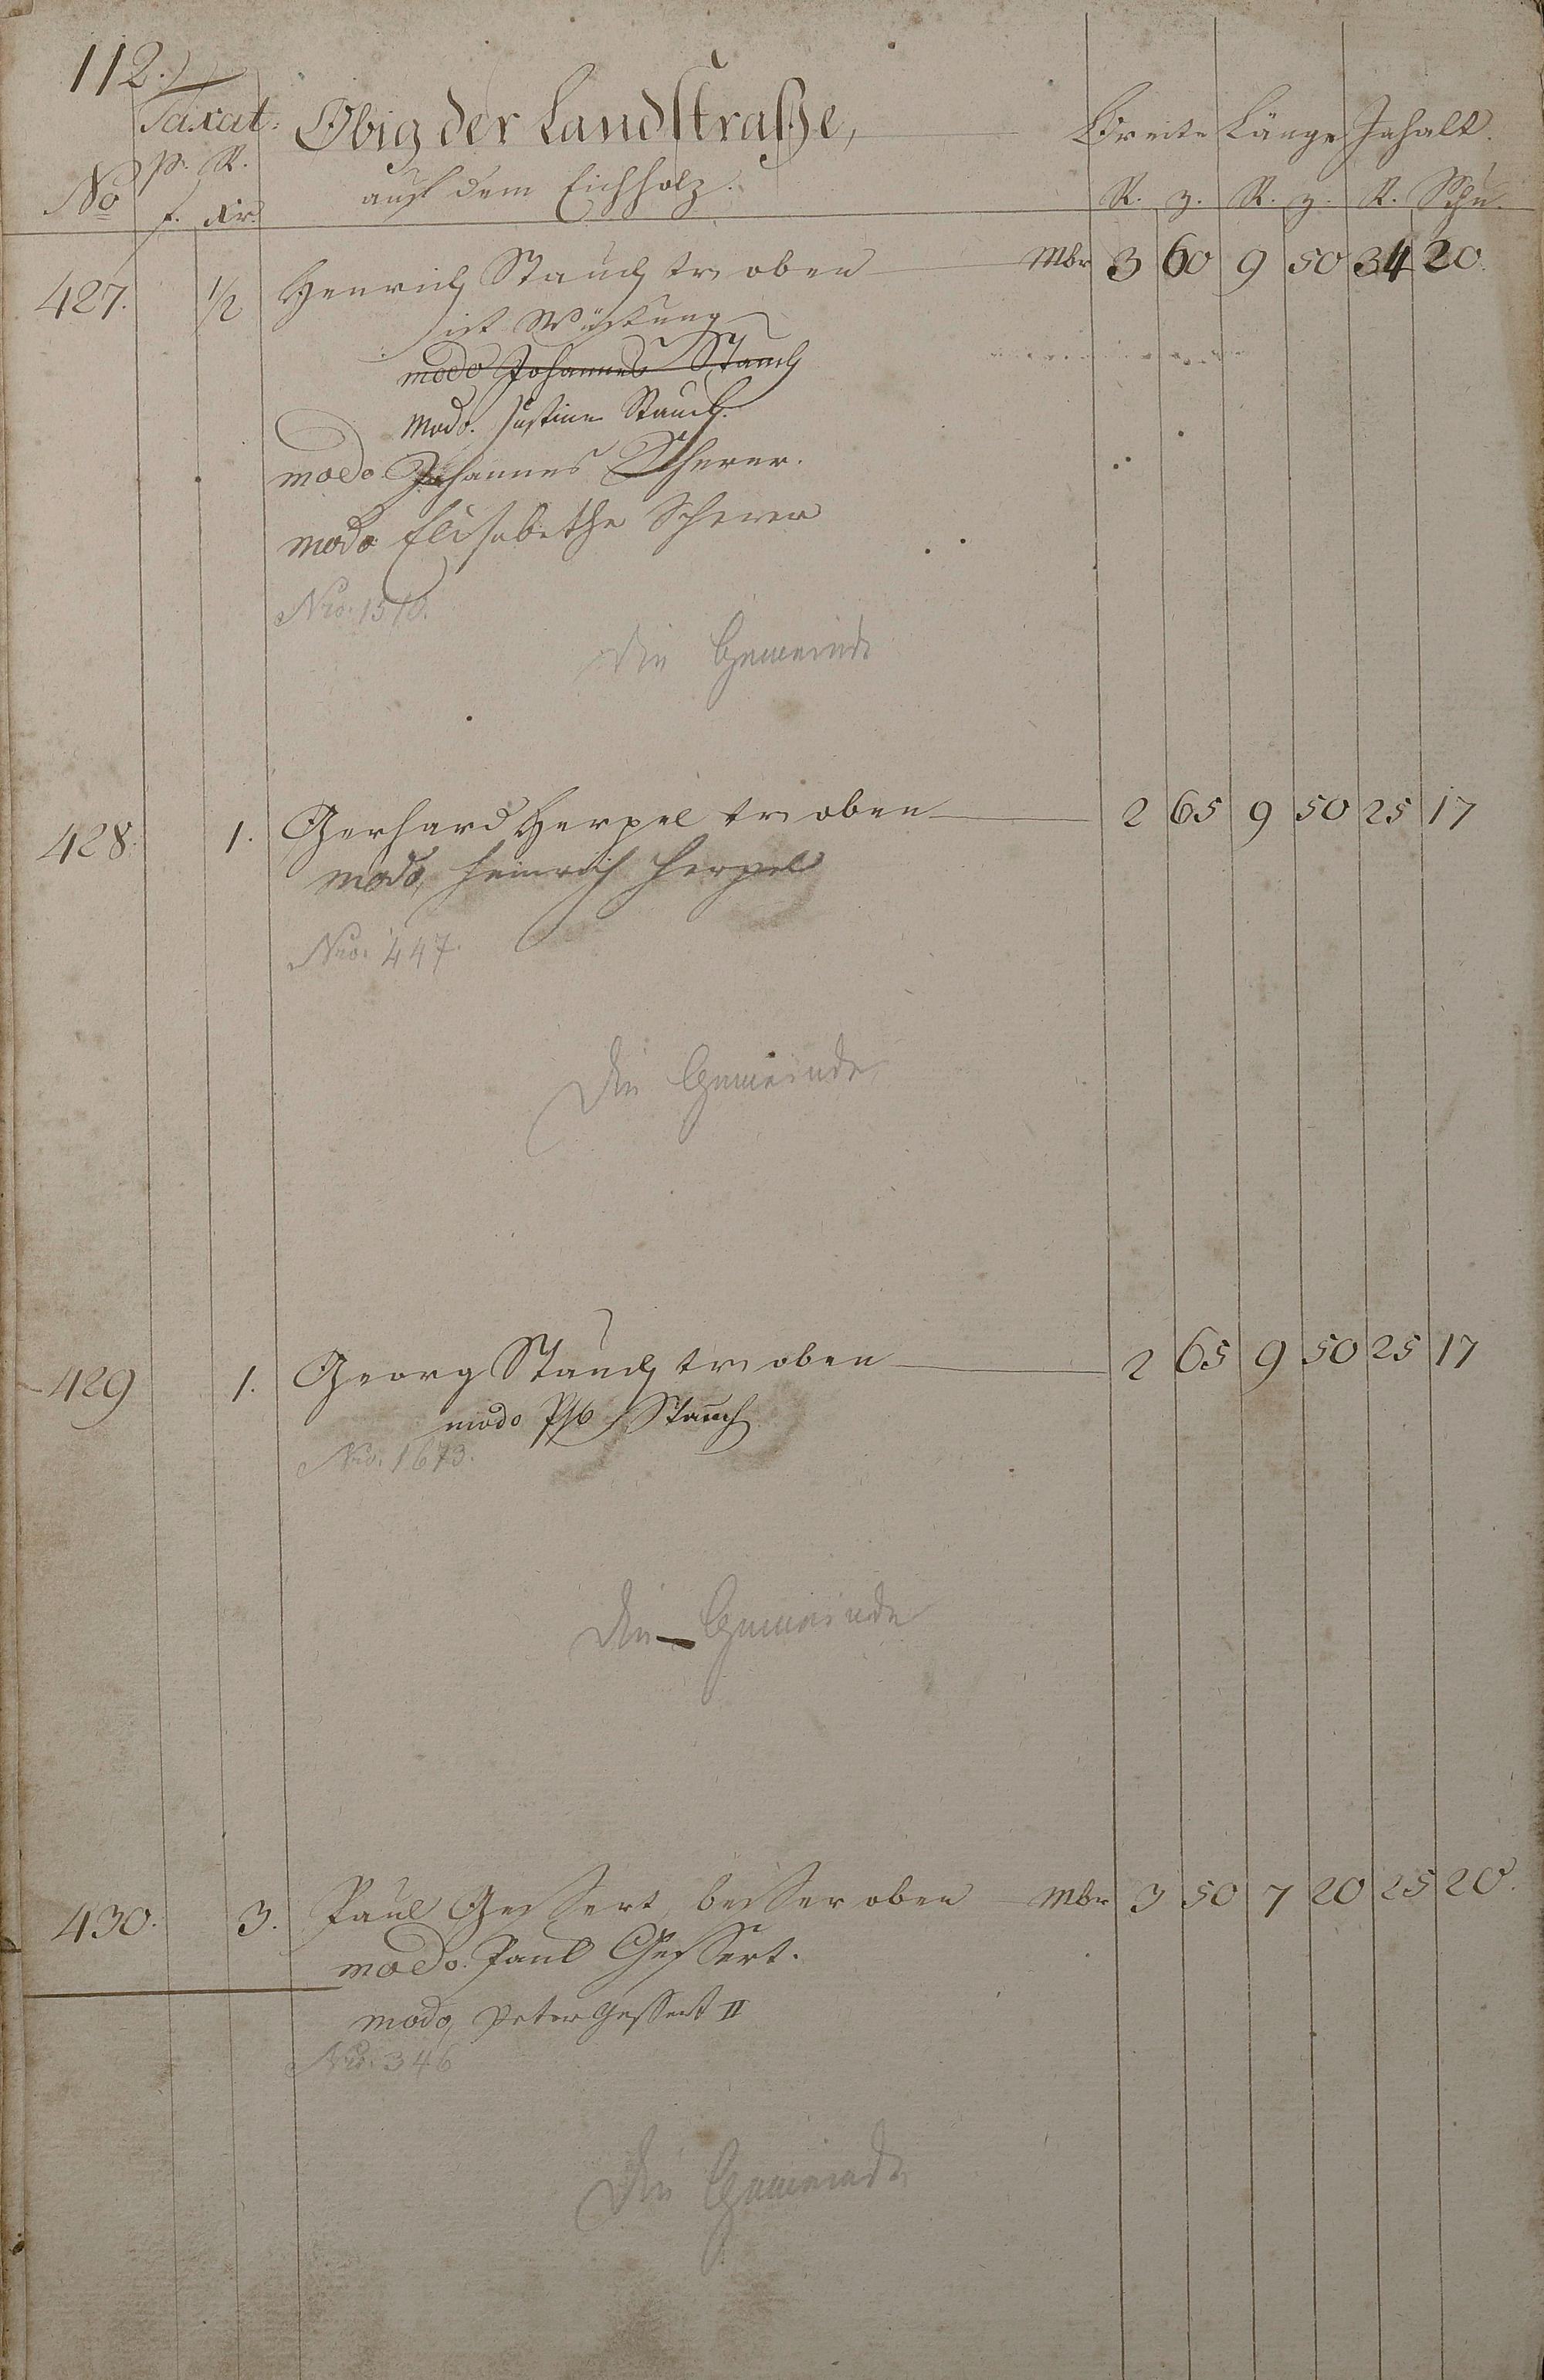 112.
Taxat: Obig der Landstraße, Breite Länge Inhalt.
p. R. auf dem Eichholz.
No f. xr. R. z. R. z. R. Schu.
427. 1/2 Henrich Stauch tr. oben Mbr 3 60 9 50 34 20.
ist Wüstung
modo Johannes Stauch
Modo. Justine Stauch.
modo Johannes Scherer.
modo Elisabethe Scherer
Nro. 1510.
Die Gemeinde
428. 1. Gerhard Herpel tr. oben 2 65 9 50 25 17
modo, Heinrich Herpel
Nro. 447.
Die Gemeinde
429 1. Georg Stauch tr. oben 2 65 9 50 25 17
modo Stauch
Nro. 1673.
Die Gemeinde
430. 3. Paul Gessert, besser oben Mbr 3 50 7 20 25 20.
modo. Paul Gessert.
modo, Peter Gessert II
Nro. 346
Die Gemeinde